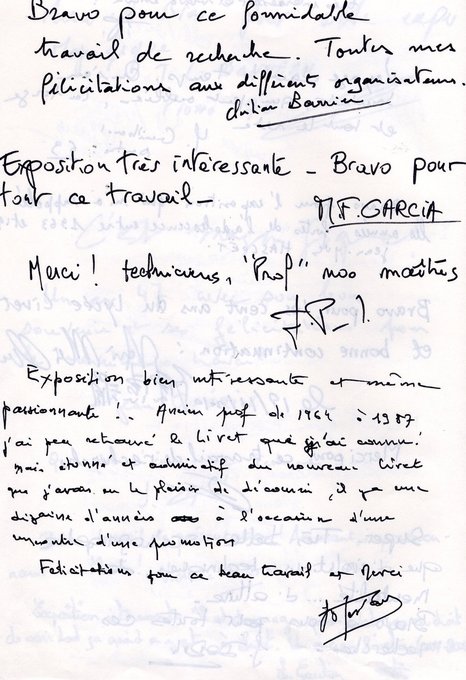 Bravo pour ce formidable
travail de recherche. Toutes mes
félicitations aux différents organisateurs.
Exposition très intéressante _ Bravo pour
tout ce travail _
M.F. GARCIA
Merci ! techniciens, "Prof" nos maîtres
J.P.
Exposition bien intéressante et même
passionnante ! Ancien prof de 1964 à 1987
j'ai peu retrouvé le Livet que j'ai connu.
mais étonné et admiratif du nouveau Livet
que j'avais eu le plaisir de découvrir, il y a une
dizaine d'années à l'occasion d'une
rencontre d'une promotion
Félicitations pour ce beau travail et Merci